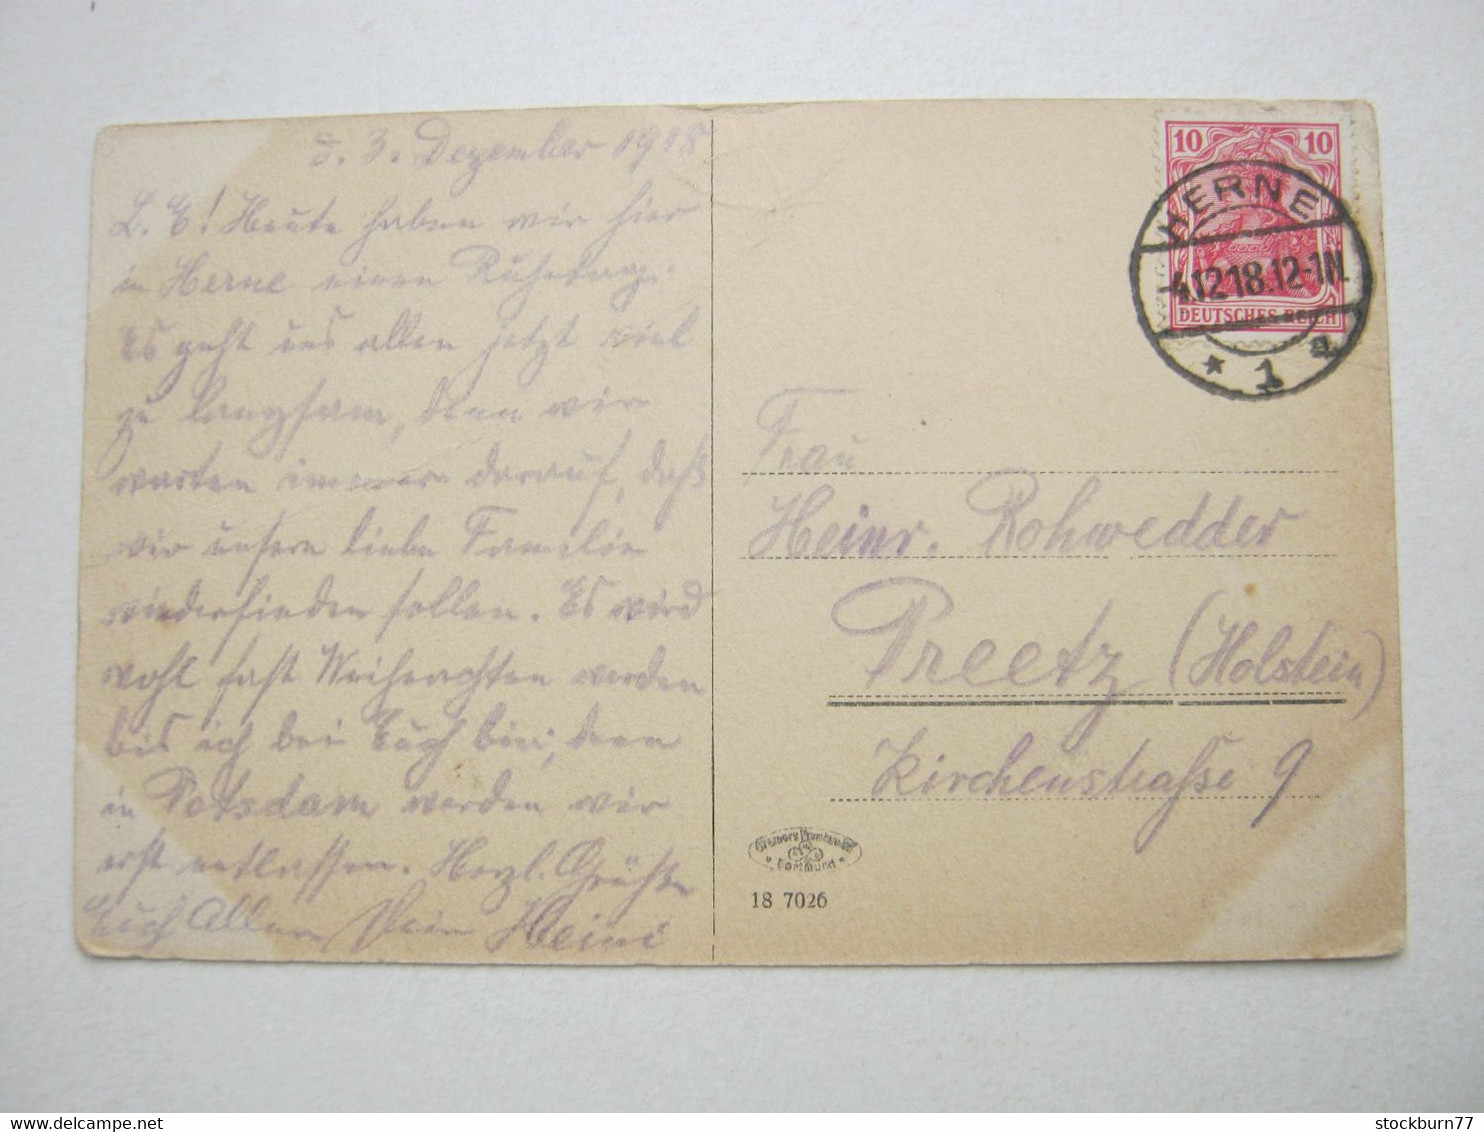 d. 3. Dezember 1918
L. E! Heute haben wir hier
in Herne einen Ruhetag.
Es geht uns allen jetzt viel
zu langsam, denn wir
warten immer darauf, daß
wir unsere liebe Familie
wiederfinden sollen. Es wird
wohl fast Weihnachten werden
bis ich bei Euch bin, denn
in Potsdam werden wir
erst entlassen. Herzl. Grüße
Euch Allen Dein Heini
10 10
DEUTSCHES REICH
HERNE
-4.12.18.12-1N.
* 1 a
Frau
Heinr. Rohwedder
Preetz (Holstein)
Kirchenstraße 9
Dortmund
18 7026
stockburn77